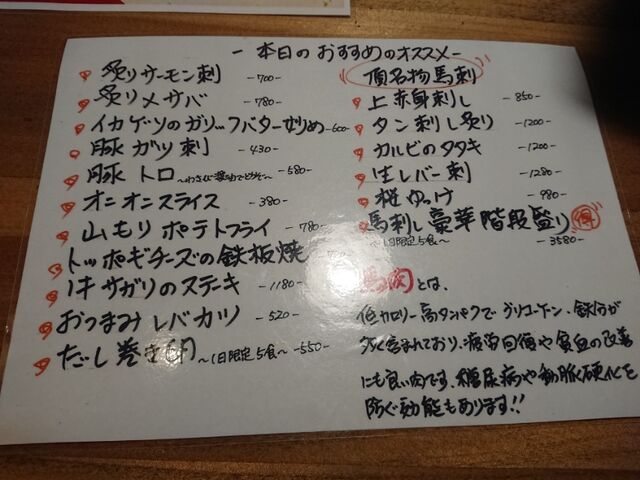 - 本日のおすすめのオススメ -
炙りサーモン刺 -700-
炙りメサバ -780-
イカゲソのガリックバター炒め -600-
豚ガツ刺 -430-
豚トロ ~わさび醤油でどうぞ~ -580-
オニオンスライス -380-
山もりポテトフライ -780-
トッポギチーズの鉄板焼
サガリのステーキ -1180-
おつまみレバカツ -520-
だし巻き卵 ~1日限定5食~ -550-
頂名物馬刺
上赤身刺し -850-
タン刺し炙り -1200-
カルビのタタキ -1200-
生レバー刺 -1280-
桜ゆっけ -980-
馬刺し豪華階段盛り 得
~1日限定5食~ -3580-
馬肉とは、
低カロリー高タンパクでグリコーゲン、鉄分が
多く含まれており、疲労回復や貧血の改善
にも良い肉です、糖尿病や動脈硬化を
防ぐ効能もあります!!